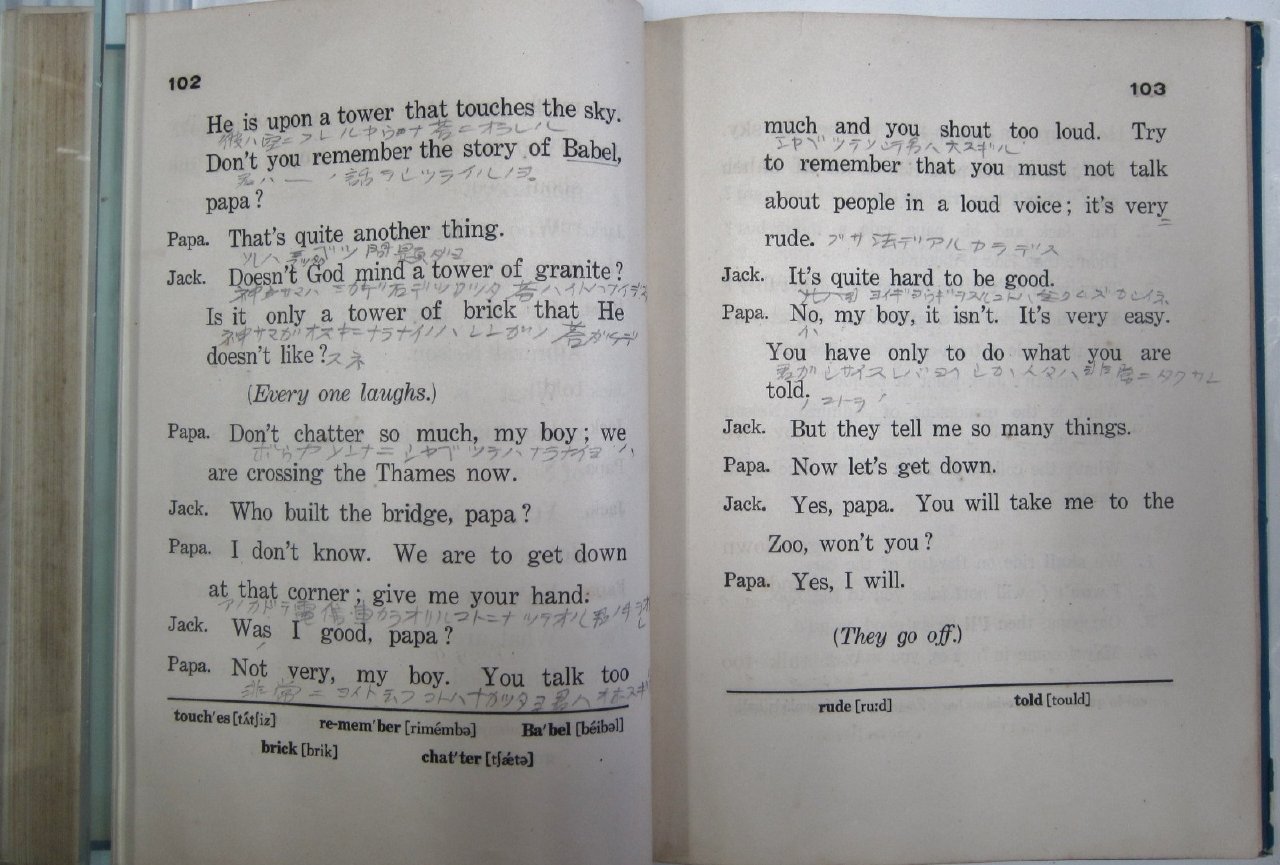 102
He is upon a tower that touches the sky.
Don't you remember the story of Babel,
papa?
Papa. That's quite another thing.
Jack. Doesn't God mind a tower of granite?
Is it only a tower of brick that He
神サマガオスキニナラナイノハレンガノ
doesn't like? スネ
(Every one laughs.)
Papa. Don't chatter so much, my boy; we
ボウヤソンナニシヤベツテハナラナイヨ
are crossing the Thames now.
Jack. Who built the bridge, papa?
Papa. I don't know. We are to get down
at that corner; give me your hand.
Jack. Was I good, papa?
Papa. Not very, my boy. You talk too
touch'es [tʌ́tʃiz] re-mem'ber [rimémbə] Ba'bel [béibəl]
brick [brik] chat'ter [tʃǽtə]
103
much and you shout too loud. Try
to remember that you must not talk
about people in a loud voice; it's very
rude. ブサ法デアルカラデス
Jack. It's quite hard to be good.
Papa. No, my boy, it isn't. It's very easy.
You have only to do what you are
told.
Jack. But they tell me so many things.
Papa. Now let's get down.
Jack. Yes, papa. You will take me to the
Zoo, won't you?
Papa. Yes, I will.
(They go off.)
rude [ru:d] told [tould]